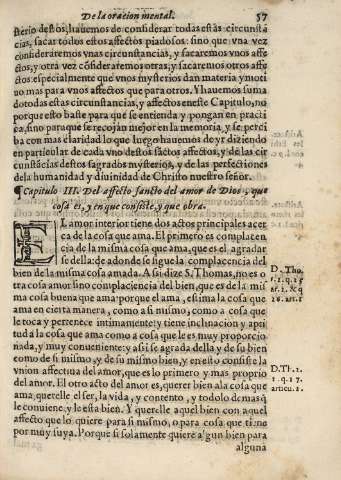 De la oracion mental. 57
sterio destos, hauemos de considerar todas estas circunsta
cias, sacar todos estos affectos piadosos: sino que vna vez
consideraremos vnas circunstancias, y sacaremos vnos affe
ctos, y otra vez cõsideraremos otras, y sacaremos otros affe
ctos especialmente que vnos mysterios dan materia y moti
uo mas para vnos affectos que para otros. Y hauemos suma
do todas estas circunstancias, y affectos en este Capitulo, no
porque esto baste para que se entienda y pongan en practi
ca, sino para que se recojan mejor en la memoria, y se perci
ba con mas claridad lo que luego hauemos de yr diziendo
en particular de cada vno destos sactos affectos, y de las cir
cunstãcias destos sagrados mysterios, y de las perfectiones
de la humanidad y diuinidad de Christo nuestro señor.
¶ Capitulo III. Del affecto sancto del amor de Dios, que
cosa es, y en que consiste, y que obra.
EL amor interior tiene dos actos principales acer
ca de la cosa que ama. El primero es complacen
cia de la misma cosa que ama, que es el agradar
se della: de adonde se sigue la complacencia del
bien de la misma cosa amada. Assi dize S. Thomas, no es o
tra cosa amor sino complaciencia del bien, que es de la mis
ma cosa buena que ama: porque el ama, estima la cosa que
ama en cierta manera, como a si mismo, como a cosa que
le toca y pertenece intimamente: y tiene inclinacion y apti
tud a la cosa que ama como a cosa que le es muy proporcio
nada, y muy conueniente: y assi se agrada della y de su bien
como de si mismo, y de su mismo bien, y en esto consiste la
vnion affectiua del amor, que es lo primero y mas proprio
del amor. El otro acto del amor es, querer bien a la cosa que
ama, querelle el ser, la vida, y contento, y todo lo demas q̃
le conuiene, y le esta bien. Y querelle aquel bien con aquel
affecto que lo quiere para si mismo, o para cosa que tiene
por muy suya. Porque si solamente quiere algun bien para
alguna
D. Tho.
1. 2. q. 25
ar. 2. & q
26. art. 1
D. Th. 2.
2. q. 27.
articu. 2.